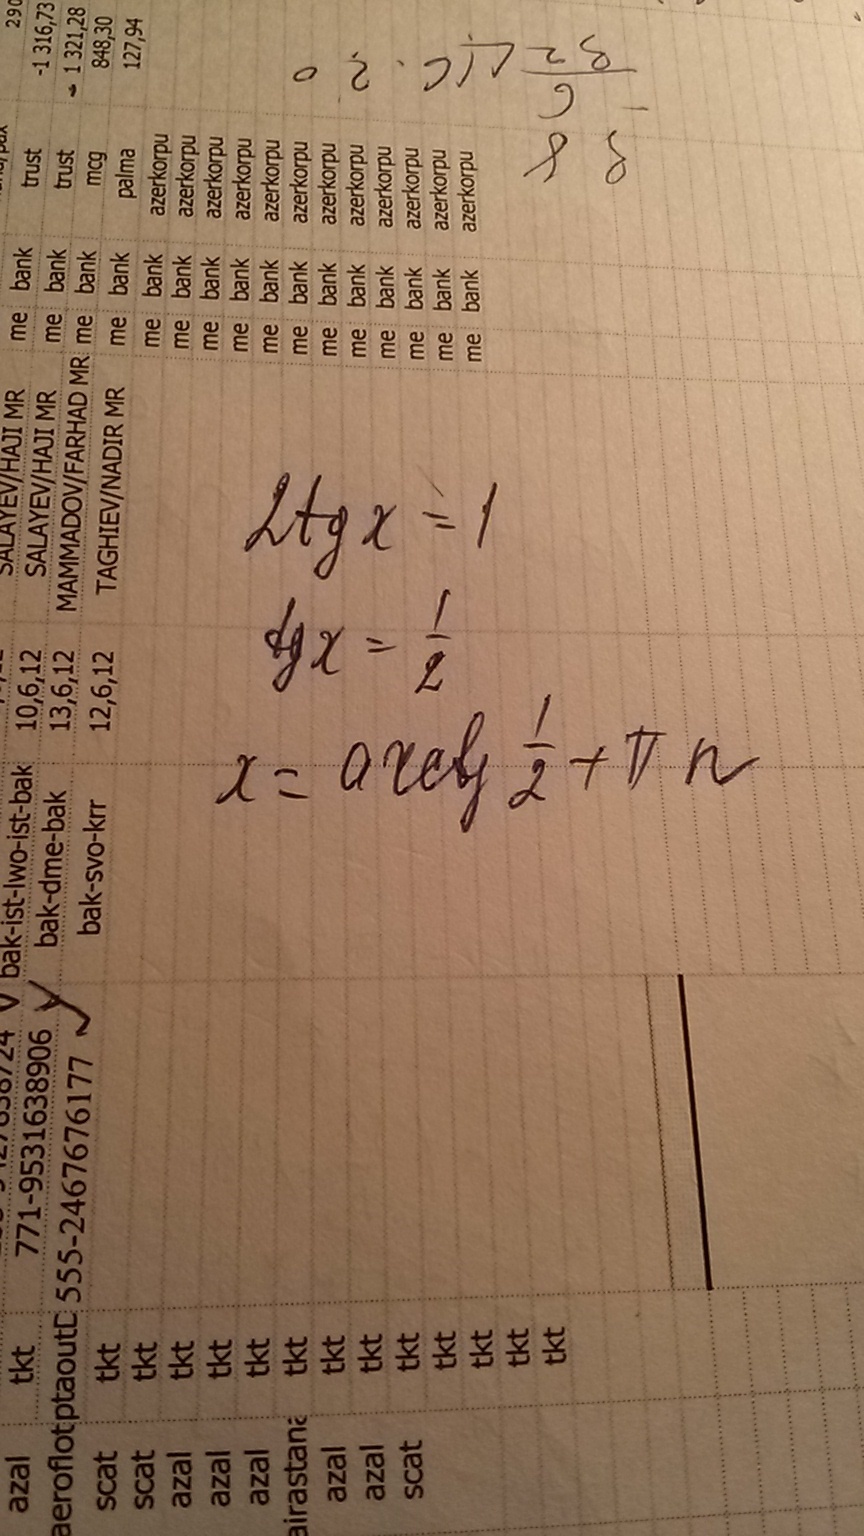 SALAYEV/HAJI MR me bank trust -1 316,73
bak-ist-lwo-ist-bak 10,6,12 SALAYEV/HAJI MR me bank trust 1 321,28
azal tkt 771-9531638906 bak-dme-bak 13,6,12 MAMMADOV/FARHAD MR me bank mcg 848,30
aeroflot ptaoutD 555-2467676177 bak-svo-krr 12,6,12 TAGHIEV/NADIR MR me bank palma 127,94
scat tkt me bank azerkorpu
scat tkt me bank azerkorpu
azal tkt me bank azerkorpu
azal tkt me bank azerkorpu
azal tkt me bank azerkorpu
airastana tkt me bank azerkorpu
azal tkt me bank azerkorpu
azal tkt me bank azerkorpu
scat tkt me bank azerkorpu
tkt me bank azerkorpu
tkt me bank azerkorpu
tkt me bank azerkorpu
tkt
2tgx = 1
tgx = 1/2
x = arctg 1/2 + πn